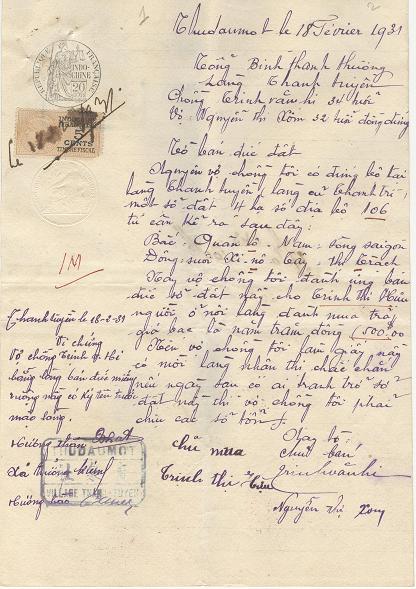 Thudaumot le 18 Février 1931
Tổng Bình Thanh Thượng
Làng Thanh Tuyền
Chồng Trịnh văn hi 34 tuổi
Vợ Nguyễn thị Xóm 32 tuổi đồng đứng
Tờ bán dức đất
Nguyên vợ chồng tôi có đứng bộ tại
làng Thanh Tuyền (làng cũ Thanh Trì)
một số đất số địa bộ 106
tứ cận kể ra sau đây:
Bắc: Quản lộ, Nam: sông saigon
Đông: suối Tây: Thị Trạch
Nay vợ chồng tôi đành ưng bán
dức số đất nầy cho Trịnh thị Hữu
người ở nơi làng đành mua trả
giá bạc là năm trăm đồng (500$00)
Nếu vợ chồng tôi làm giấy nầy
có mời làng nhận thị chắc chắn
nếu ngày sau có ai tranh trở số
đất nầy thì vợ chồng tôi phải
chịu các sở tổn
1
2
RÉPUBLIQUE FRANÇAISE
INDO-
CHINE
20
5
CENTS
TIMBRE FISCAL
1M
Thanh Tuyền le 18-2-31
Vi chứng
Vợ chồng Trịnh v. Hi
bằng lòng bán dức miếng
ruộng nầy có ký tên trước
mặt làng
Hương thân
Xã trưởng
Hương hào
THUDAUMOT
VILLAGE THANH TUYEN
chủ mua
Trịnh thị Hữu
Nay tờ
Chủ bán
Trịnh văn hi
Nguyễn thị Xom